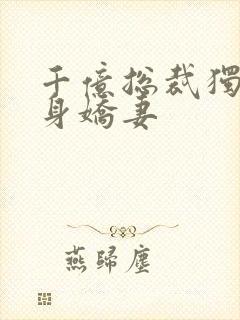 千億總裁獨
身嬌妻
燕歸塵